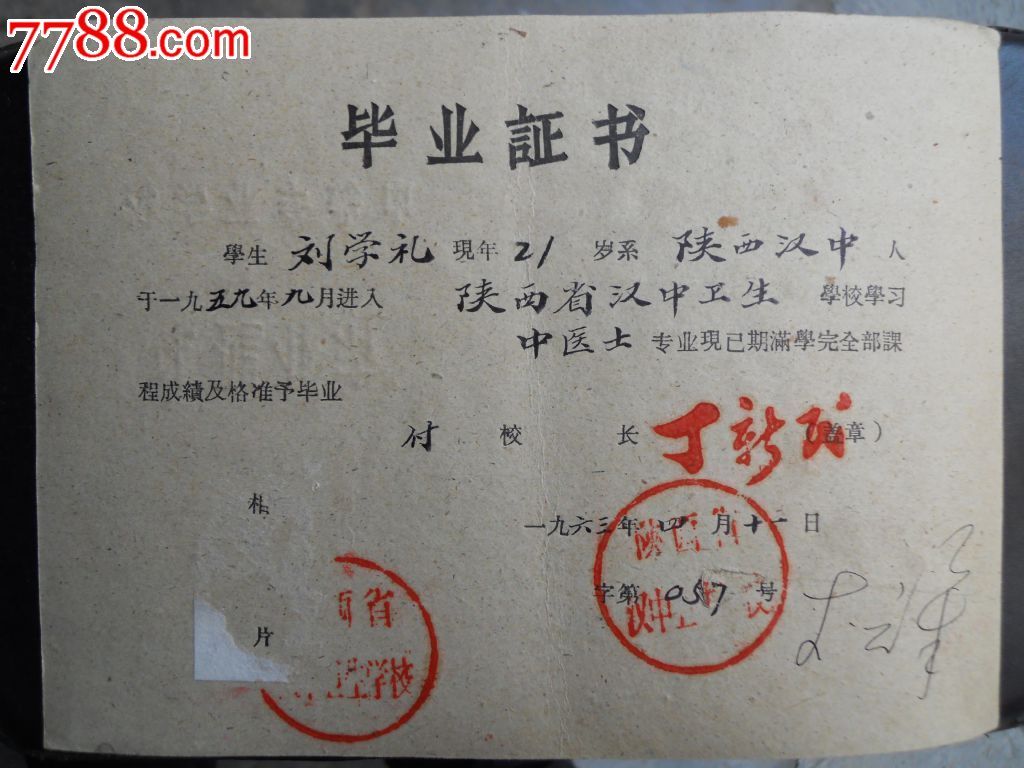 7788.com
毕业証书
學生 刘学礼 現年 21 岁系 陕西汉中 人
于一九五九年九月进入 陕西省汉中卫生 學校學习
中医士 专业現已期滿學完全部課
程成績及格准予毕业
付 校 长 丁新民 (盖章)
相
一九六三年 四 月 十一 日
陕西省
字第 0517 号
汉中卫 校
西省
片
卫生学校